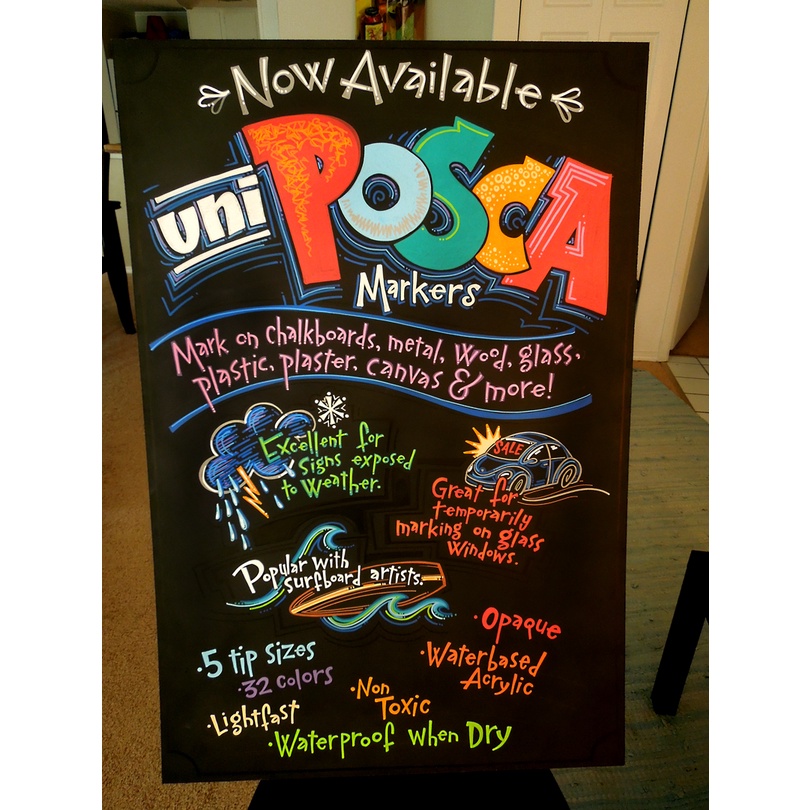 Now Available
uni POSCA
Markers
Mark on chalkboards, metal, wood, glass,
plastic, plaster, canvas & more!
Excellent for
signs exposed
to weather.
SALE
Great for
temporarily
marking on glass
windows.
Popular with
surfboard artists.
• Opaque
• 5 tip sizes
• Waterbased
Acrylic
• 32 colors
• Non
Toxic
• Lightfast
• Waterproof when Dry